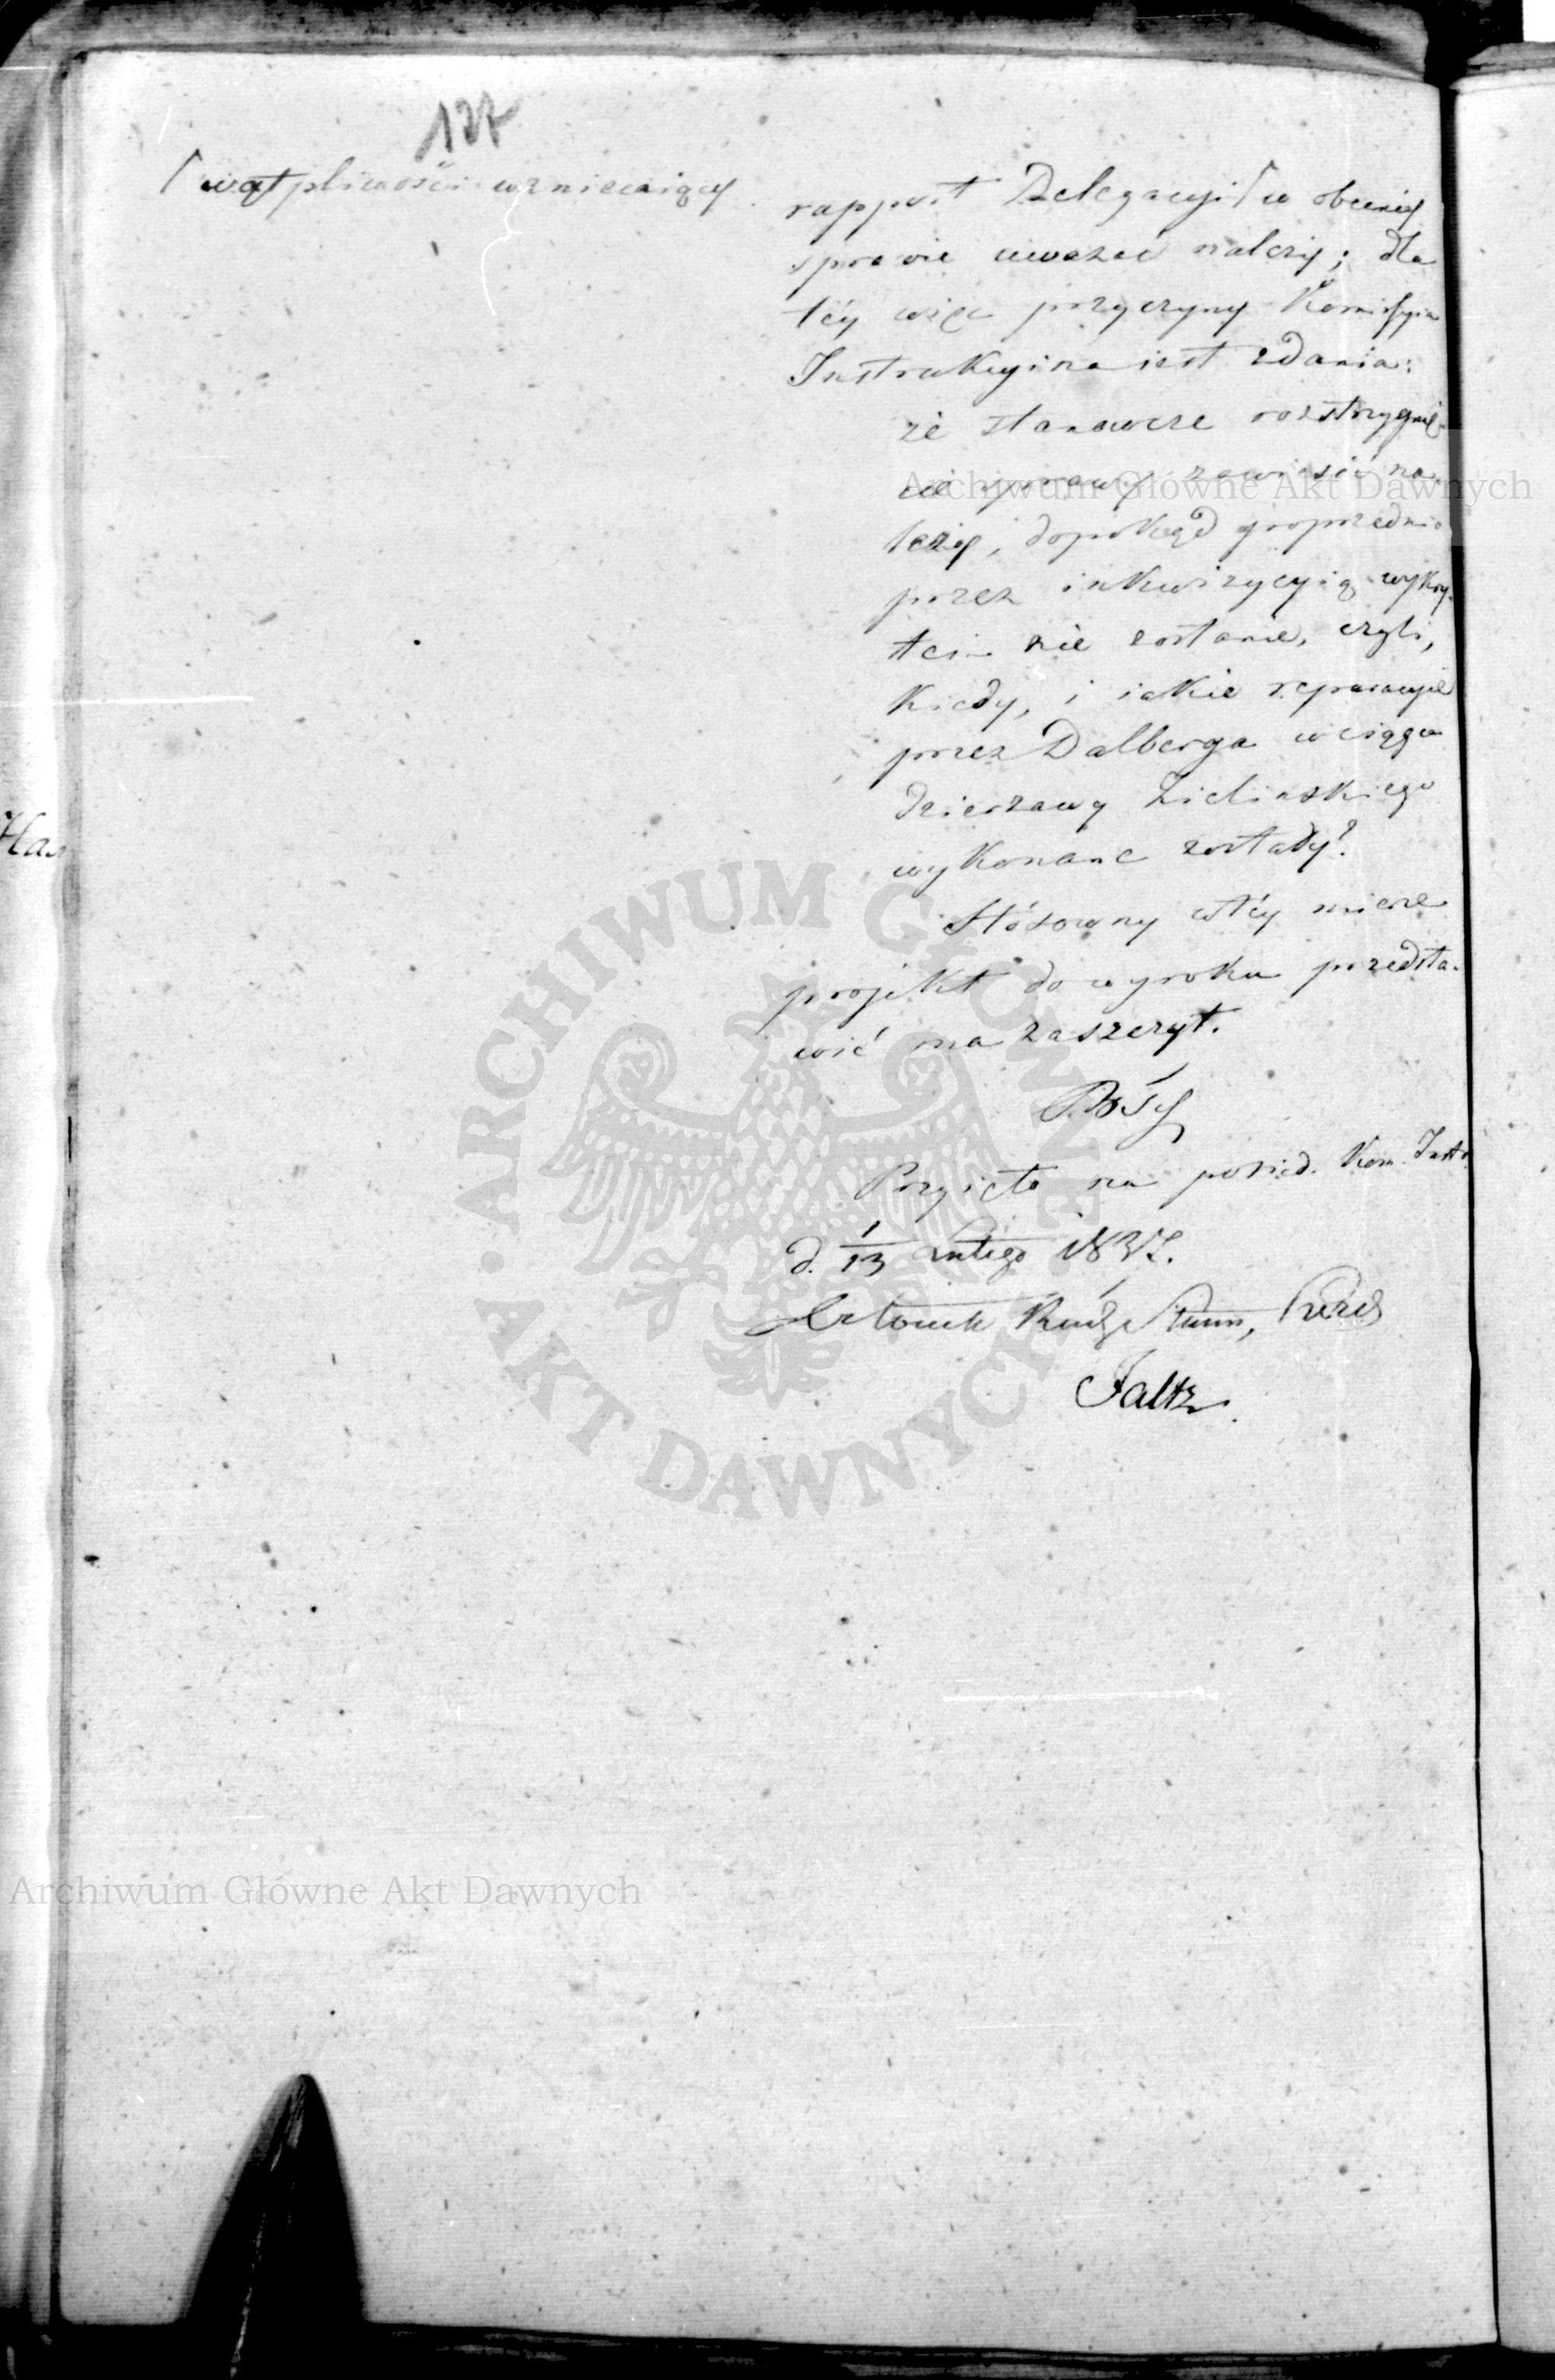 127
wątpliwości wzniecaiący
rapport Delegacyi w obecney
sprawie uważać należy; dla
téy więc przyczyny Kommissyia
Instrukcyina iest zdania:
że stanowcze rozstrzygnię-
cie sprawy zawiesić na-
leży, dopokąd poprzednio
przez inkwizycyią wykry-
tem nie zostanie, czyli,
kiedy, i iakie reparacyie
przez Dalberga w ciągu
dzierżawy Zielinskiego
wykonane zostały?
Stósowny w téy mierze
projekt do wyroku przedsta-
wić ma zaszczyt.
Przyięto na posied. Kom. Instr.
d. 1/13 Lutego 1837.
Członek Rady Stanu, Prezes
Faltz
Archiwum Główne Akt Dawnych
ARCHIWUM GŁÓWNE
AKT DAWNYCH
Archiwum Główne Akt Dawnych